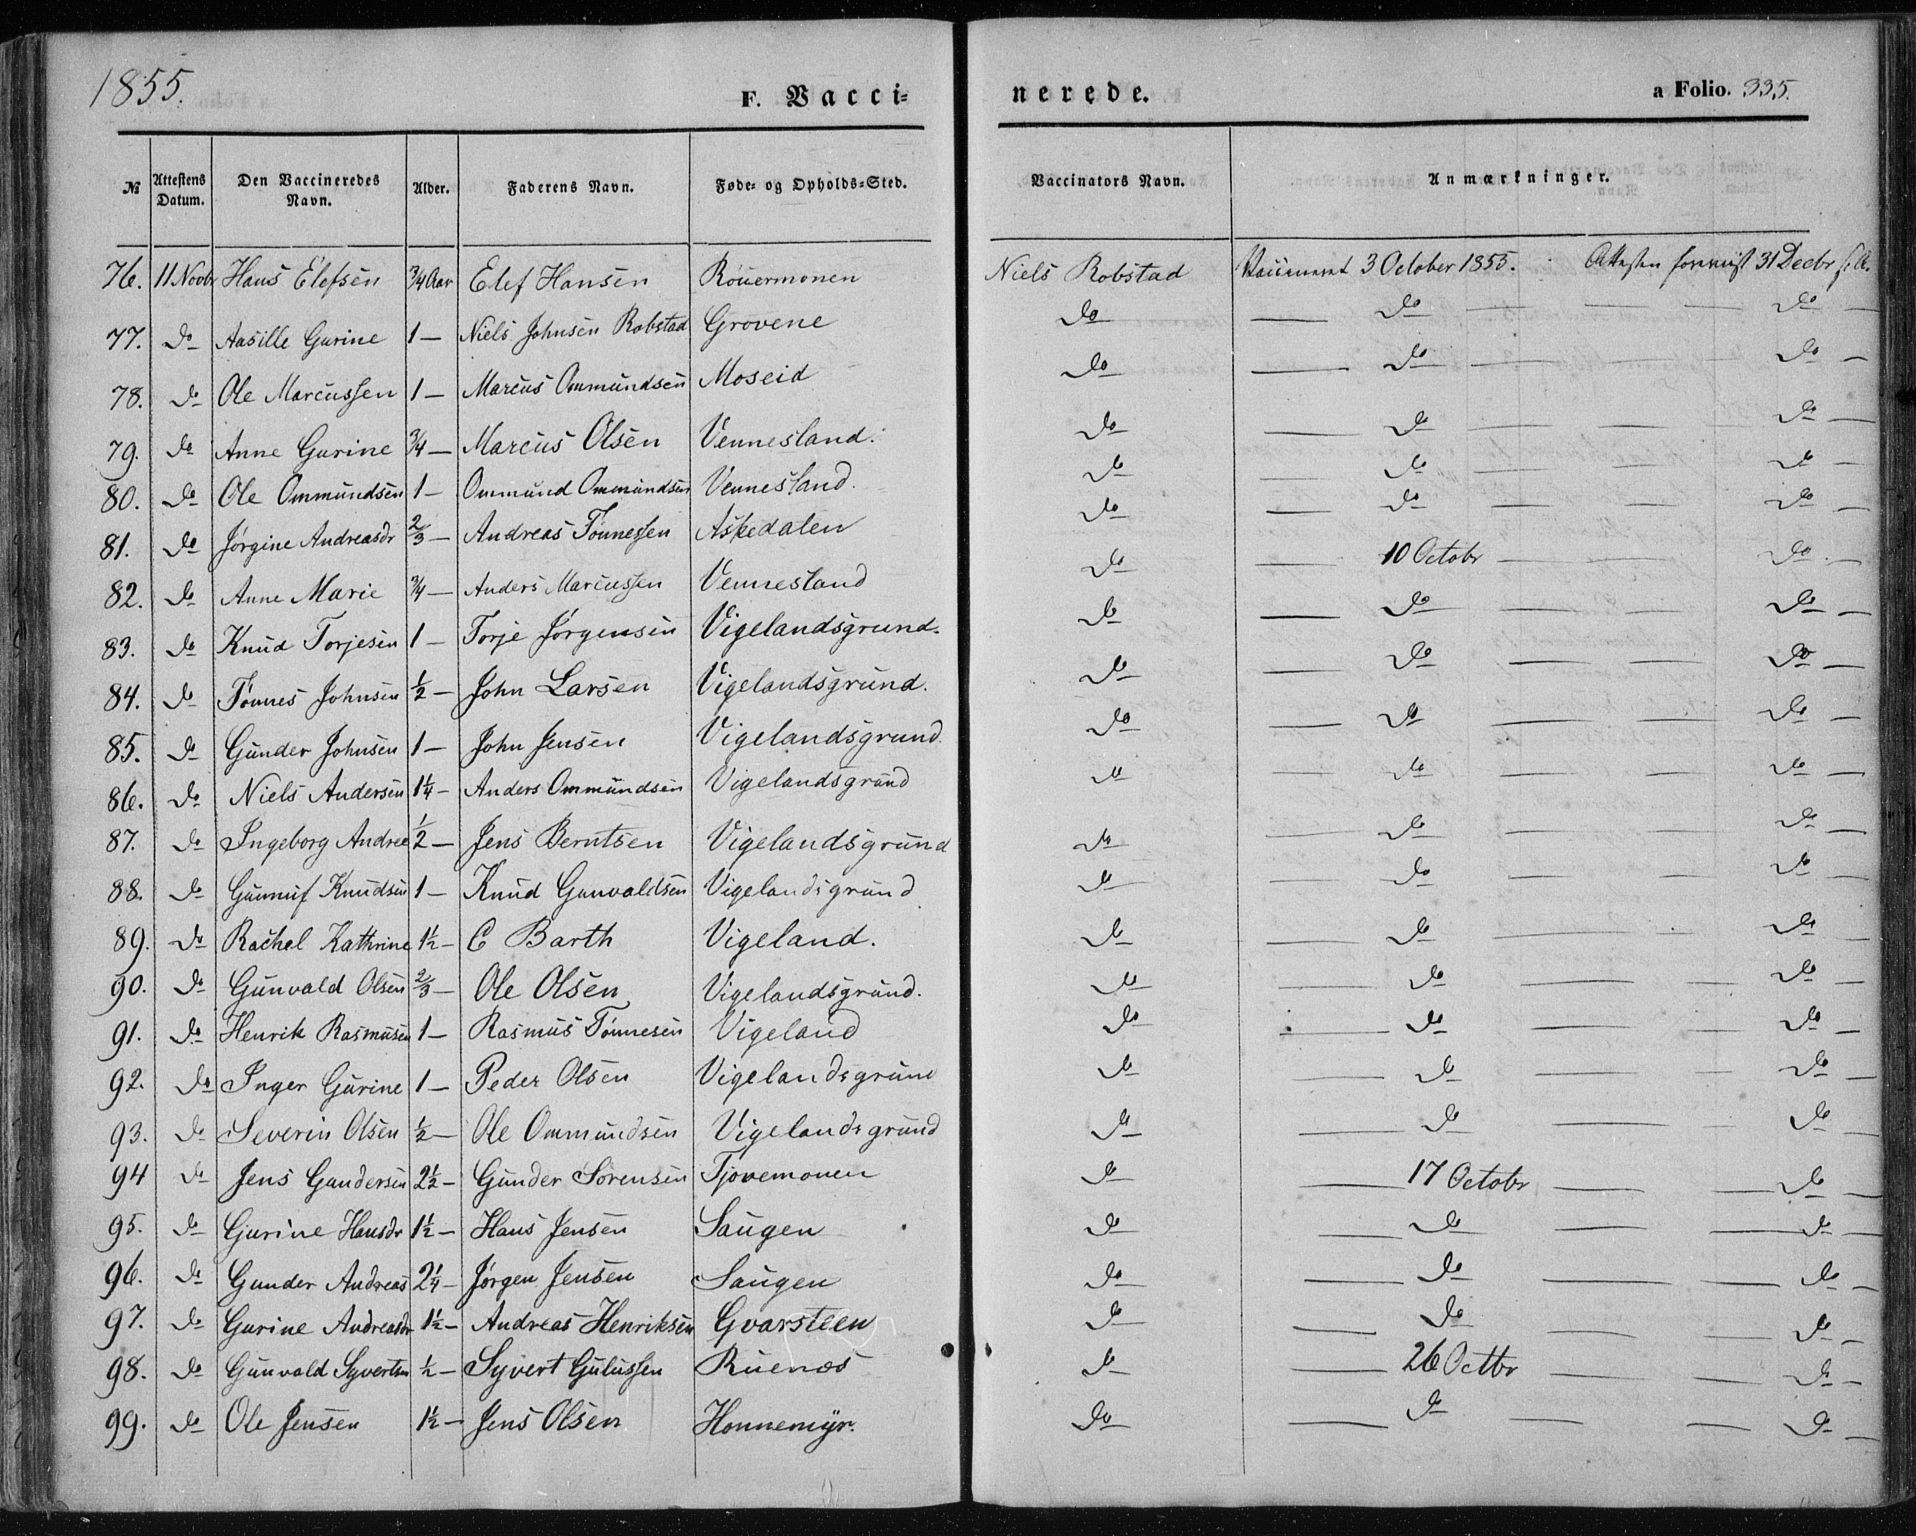 1855.
F. Vacci-
nerede.
a Folio. 335.
№ | Attestens Datum. | Den Vaccineredes Navn. | Alder. | Faderens Navn. | Føde- og Opholds-Sted. | Vaccinators Navn. | Anmærkninger.
76. | 11 Novbr | Hans Elefsen | 3/4 Aar | Elef Hansen | Rouermonen | Niels Robstad | 3 October 1855. Attesten 31 Decbr
77. | do | Aasille Gurine | 1 — | Niels Johnsen Robstad | Grovene | do | — do — — — do —
78. | do | Ole Marcussen | 1 — | Marcus Ommundsen | Moseid | do | — do — — — do —
79. | do | Anne Gurine | 3/4 — | Marcus Olsen | Vennesland. | do | — do — — — do —
80. | do | Ole Ommundsen | 1 — | Ommund Ommundsen | Vennesland. | do | — do — — — do —
81. | do | Jørgine Andreasdr | 2/3 — | Andreas Tønnessen | Askedalen | do | — do — — — do —
82. | do | Anne Marie | 3/4 — | Anders Marcussen | Vennesland | do | — 10 Octobr — — — do
83. | do | Knud Torjesen | 1 — | Torje Jørgensen | Vigelandsgrund. | do | — do — — — do —
84. | do | Tønnes Johnsen | 1/2 — | John Larsen | Vigelandsgrund. | do | — do — — — do —
85. | do | Gunder Johnsen | 1 — | John Jensen | Vigelandsgrund. | do | — do — — — do —
86. | do | Niels Andersen | 1 1/4 — | Anders Ommundsen | Vigelandsgrund | do | — do — — — do —
87. | do | Ingeborg Andrea | 1/2 — | Jens Berntsen | Vigelandsgrund | do | — do — — — do —
88. | do | Gunnuf Knudsen | 1 — | Knud Gunvaldsen | Vigelandsgrund | do | — do — — — do —
89. | do | Rachel Kathrine | 1 1/2 — | C Barth | Vigeland. | do | — do — — — do —
90. | do | Gunvald Olsen | 2/3 — | Ole Olsen | Vigelandsgrund. | do | — do — — — do —
91. | do | Henrik Rasmusen | 1 — | Rasmus Tønnesen | Vigeland | do | — do — — — do —
92. | do | Inger Gurine | 1 — | Peder Olsen | Vigelandsgrund | do | — do — — — do —
93. | do | Severin Olsen | 1/2 — | Ole Ommundsen | Vigelandsgrund | do | — do — — — do —
94 | do | Jens Gundersen | 2 1/2 — | Gunder Sørensen | Tjovemonen | do | — 17 Octobr — — — do —
95. | do | Gurine Hansdr | 1 1/2 — | Hans Jensen | Saugen | do | — do — — — do —
96. | do | Gunder Andreas | 2 1/4 — | Jørgen Jensen | Saugen | do | — do — — — do —
97. | do | Gurine Andreasdr | 1 1/2 — | Andreas Henriksen | Gvarsteen | do | — do — — — do —
98. | do | Gunvald Syvertsen | 1/2 — | Syvert Gulussen | Ruenæs | do | — 26 Octbr — — — do —
99. | do | Ole Jensen | 1 1/2 — | Jens Olsen | Honnemyr. | do | — do — — — do —